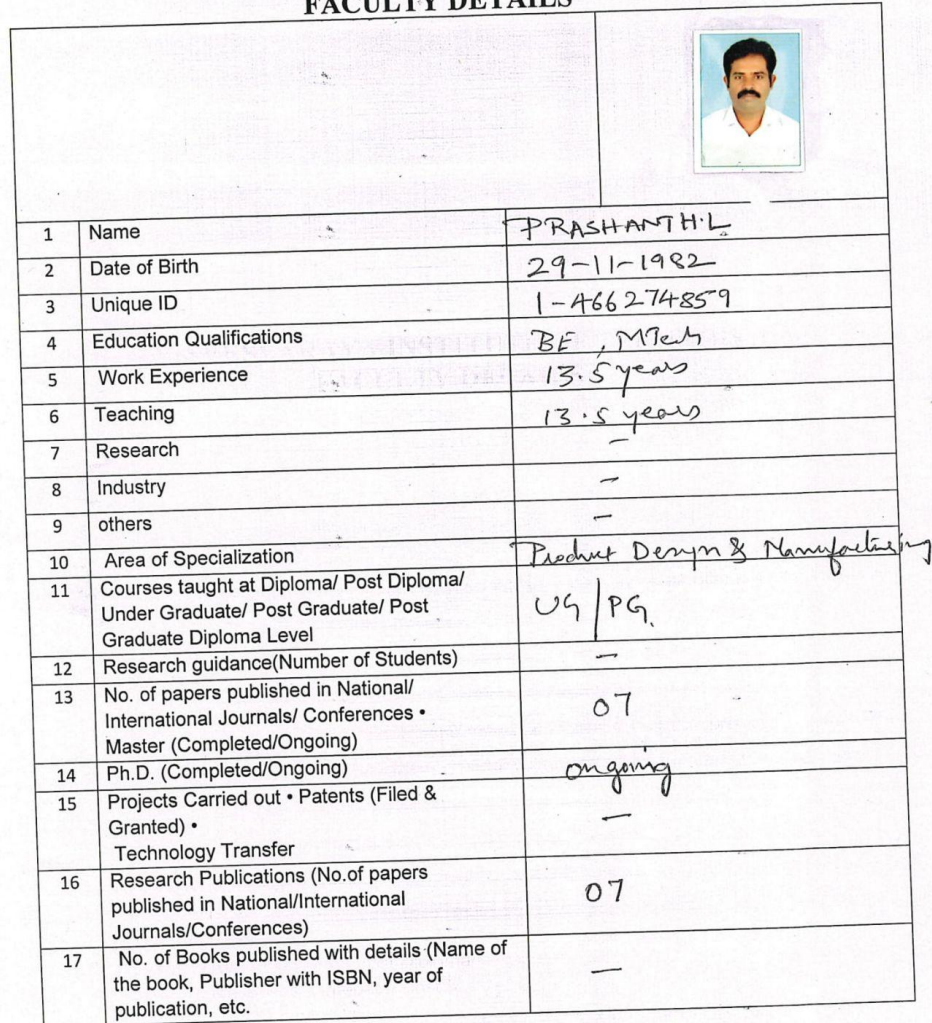 FACULTY DETAILS
1 Name PRASHANTH.L
2 Date of Birth 29-11-1982
3 Unique ID 1-466274859
4 Education Qualifications BE, MTech
5 Work Experience 13.5 years
6 Teaching 13.5 years
7 Research -
8 Industry -
9 others -
10 Area of Specialization Product Design & Manufacturing
11 Courses taught at Diploma/ Post Diploma/
Under Graduate/ Post Graduate/ Post UG/PG.
Graduate Diploma Level
12 Research guidance(Number of Students) -
13 No. of papers published in National/
International Journals/ Conferences • 07
Master (Completed/Ongoing)
14 Ph.D. (Completed/Ongoing) ongoing
15 Projects Carried out • Patents (Filed &
Granted) • -
Technology Transfer
16 Research Publications (No.of papers
published in National/International 07
Journals/Conferences)
17 No. of Books published with details (Name of
the book, Publisher with ISBN, year of -
publication, etc.